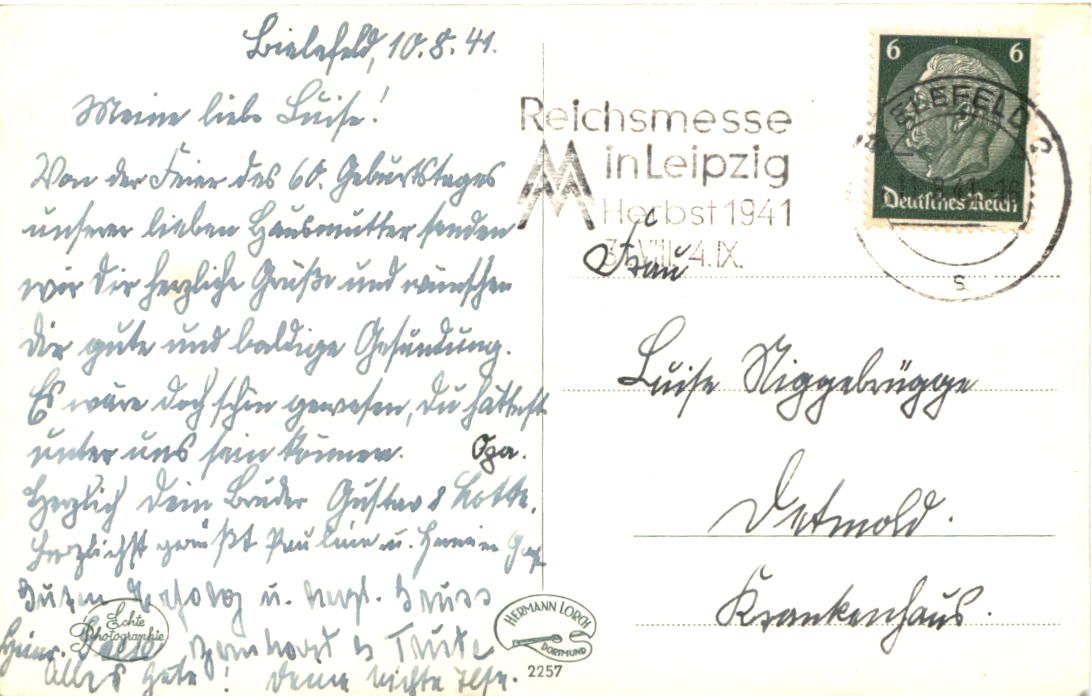 Bielefeld, 10.8.41.
Meine liebe Luise!
Von der Feier des 60. Geburtstages
unserer lieben Hausmutter senden
wir Dir herzliche Grüße und wünschen
Dir gute und baldige Gesundung.
Es wäre doch schön gewesen, Du hättest
unter uns sein können. Opa.
Herzlich Dein Bruder Gustav & Lotte.
Herzlichst grüßt Pauline u.
Guten Erfolg u. herzl. Gruss
Heinr.
& Trude
Alles Gute! Deine Nichte Ilse.
Echte
Photographie
HERMANN LORCH
DORTMUND
2257
Reichsmesse
in Leipzig
Herbst 1941
31.VIII.-4.IX.
6 6
Deutsches Reich
BIELEFELD 2
11.8.41.-16
s
Frau
Luise Niggebrügge
Detmold.
Krankenhaus.